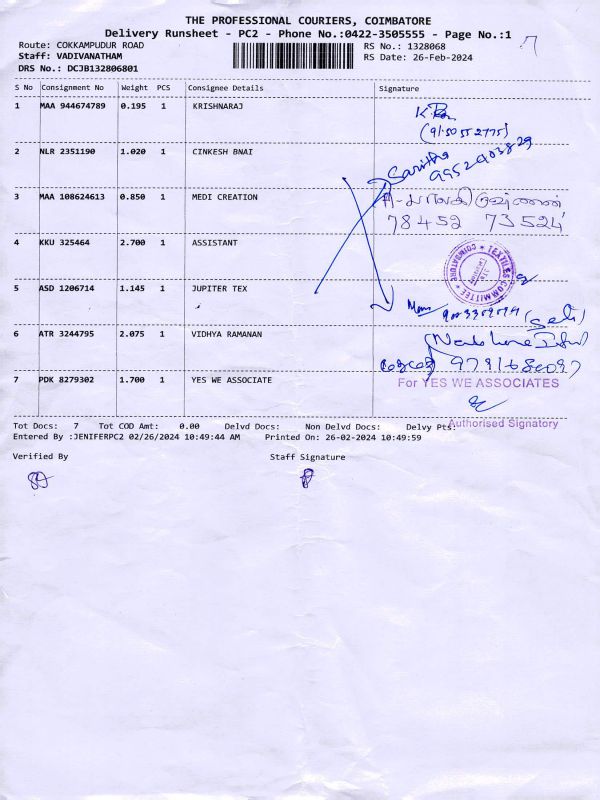 THE PROFESSIONAL COURIERS, COIMBATORE
Delivery Runsheet - PC2 - Phone No.:0422-3505555 - Page No.:1
Route: COKKAMPUDUR ROAD RS No.: 1328068
Staff: VADIVANATHAM RS Date: 26-Feb-2024
DRS No.: DCJB132806801
S No Consignment No Weight PCS Consignee Details Signature
1 MAA 944674789 0.195 1 KRISHNARAJ
(9150552775)
2 NLR 2351190 1.020 1 CINKESH BNAI Saritha
9952403829
3 MAA 108624613 0.850 1 MEDI CREATION
78452 73524
4 KKU 325464 2.700 1 ASSISTANT
5 ASD 1206714 1.145 1 JUPITER TEX
6 ATR 3244795 2.075 1 VIDHYA RAMANAN
9791680097
7 PDK 8279302 1.700 1 YES WE ASSOCIATE For YES WE ASSOCIATES
Authorised Signatory
Tot Docs: 7 Tot COD Amt: 0.00 Delvd Docs: Non Delvd Docs: Delvy Pts:
Entered By :JENIFERPC2 02/26/2024 10:49:44 AM Printed On: 26-02-2024 10:49:59
Verified By Staff Signature